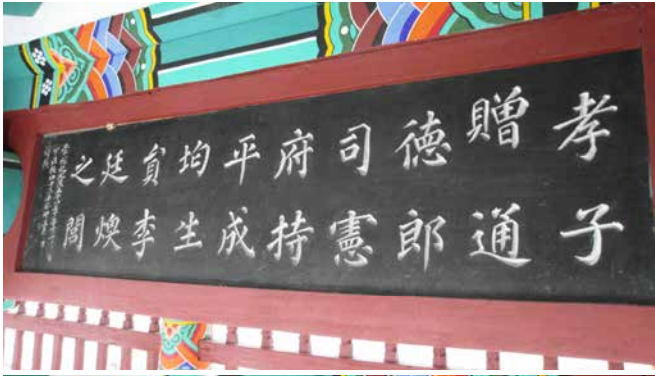 孝子
贈通
德郎
司憲
府持
平成
均生
貟李
廷煥
之閭